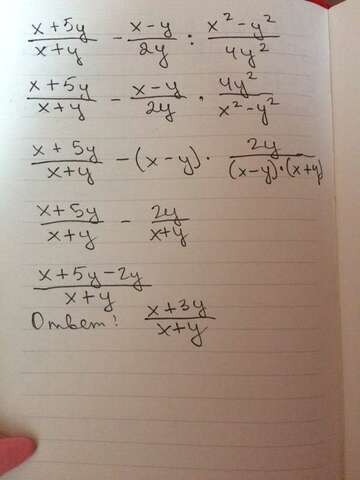 (x + 5y)/(x + y) - (x - y)/(2y) : (x² - y²)/(4y²)
(x + 5y)/(x + y) - (x - y)/(2y) · (4y²)/(x² - y²)
(x + 5y)/(x + y) - (x - y) · (2y)/((x - y) · (x + y))
(x + 5y)/(x + y) - (2y)/(x + y)
(x + 5y - 2y)/(x + y)
Ответ: (x + 3y)/(x + y)